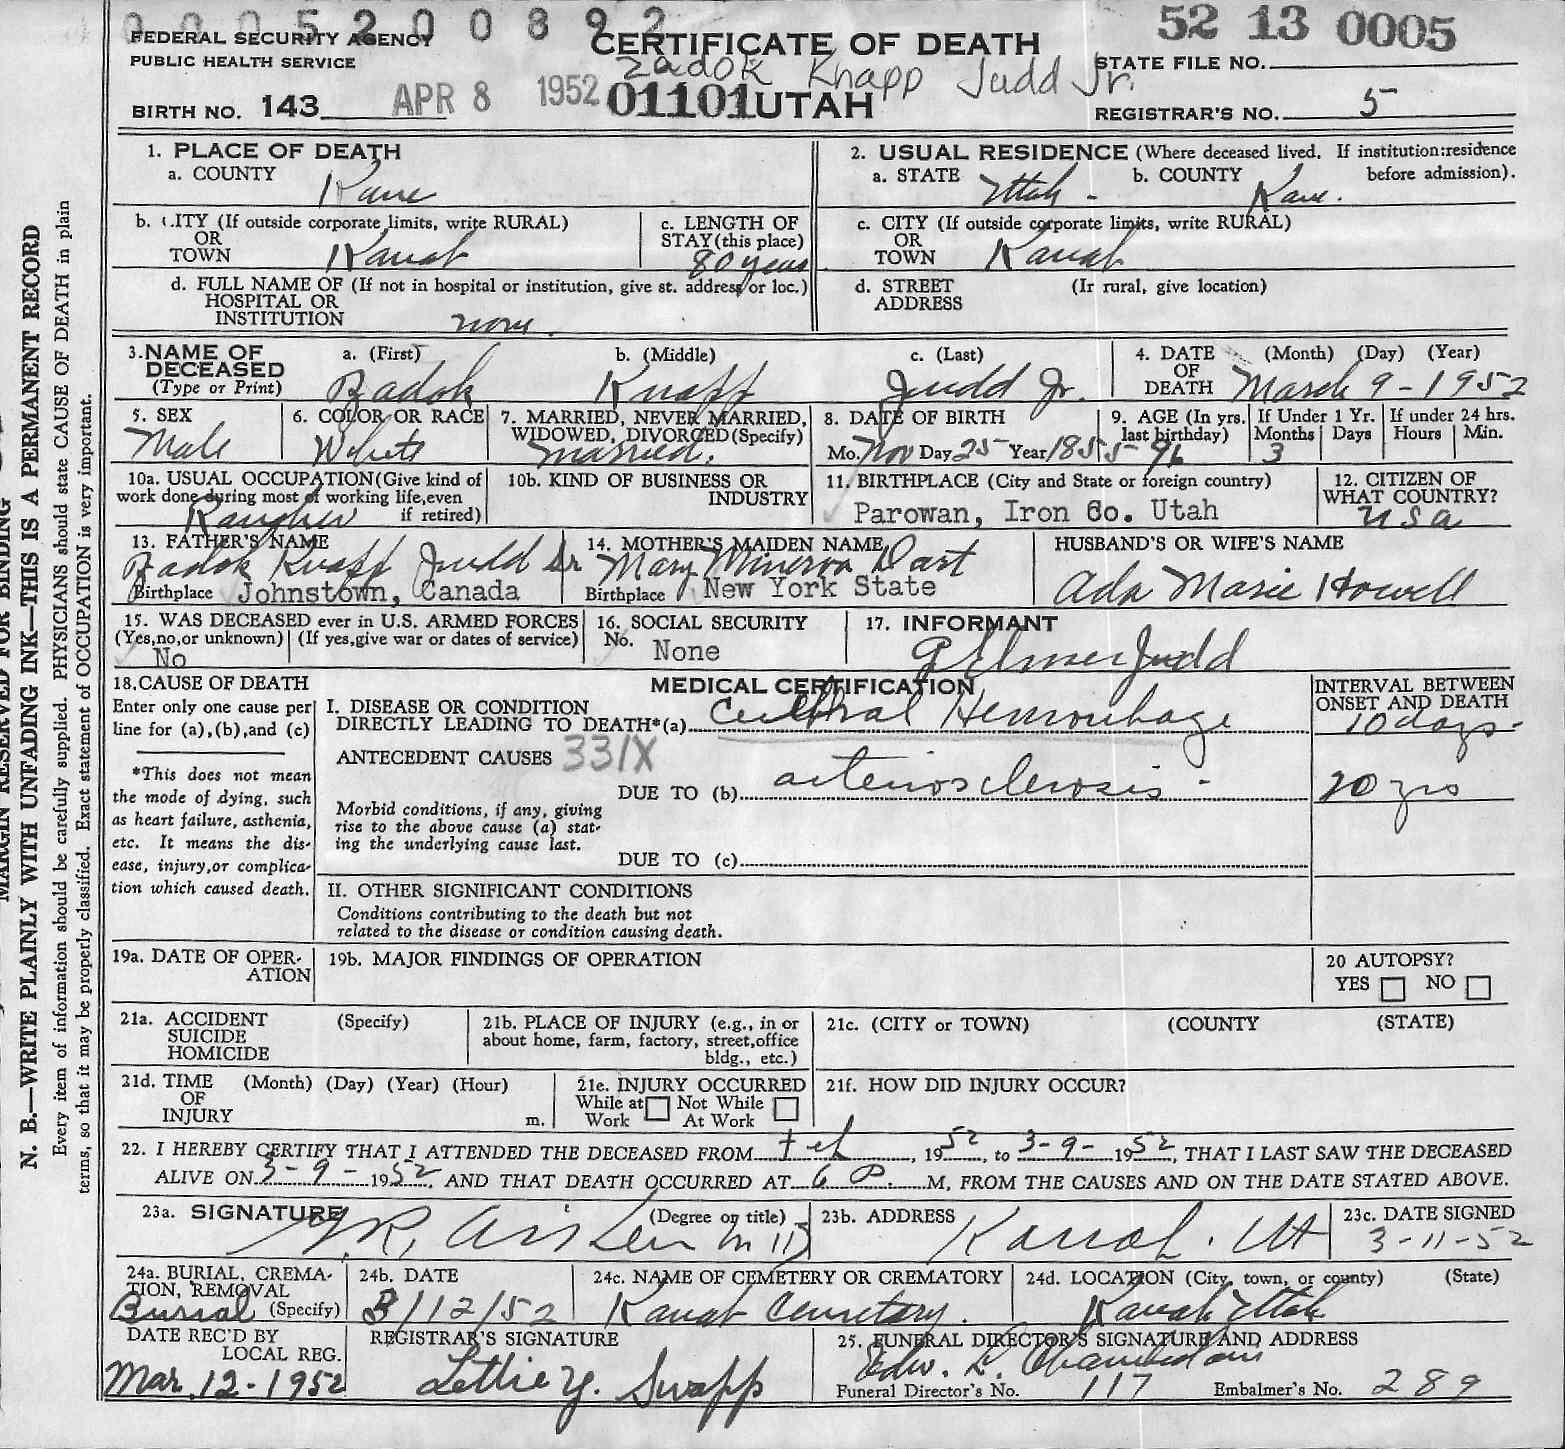 0005200892
52 13 0005
FEDERAL SECURITY AGENCY
PUBLIC HEALTH SERVICE
CERTIFICATE OF DEATH
Zadok Knapp Judd Jr.
STATE FILE NO.
BIRTH NO. 143
APR 8 1952
01101 UTAH
REGISTRAR'S NO. 5
1. PLACE OF DEATH
a. COUNTY Kane
2. USUAL RESIDENCE (Where deceased lived. If institution:residence before admission).
a. STATE Utah - b. COUNTY Kane.
b. CITY (If outside corporate limits, write RURAL)
OR
TOWN Kanab
c. LENGTH OF
STAY (this place)
80 years
c. CITY (If outside corporate limits, write RURAL)
OR
TOWN Kanab
d. FULL NAME OF (If not in hospital or institution, give st. address or loc.)
HOSPITAL OR
INSTITUTION none.
d. STREET (Ir rural, give location)
ADDRESS
3. NAME OF DECEASED
(Type or Print)
a. (First) Zadok
b. (Middle) Knapp
c. (Last) Judd Jr.
4. DATE OF DEATH (Month) (Day) (Year)
March 9 - 1952
5. SEX
Male
6. COLOR OR RACE
White
7. MARRIED, NEVER MARRIED,
WIDOWED, DIVORCED (Specify)
Married.
8. DATE OF BIRTH
Mo. Nov Day 25 Year 1855
9. AGE (In yrs. last birthday)
96
If Under 1 Yr.
Months Days
3
If under 24 hrs.
Hours Min.
10a. USUAL OCCUPATION (Give kind of
work done during most of working life, even
if retired)
Rancher
10b. KIND OF BUSINESS OR
INDUSTRY
11. BIRTHPLACE (City and State or foreign country)
Parowan, Iron Co. Utah
12. CITIZEN OF
WHAT COUNTRY?
USA
13. FATHER'S NAME
Zadok Knapp Judd Sr
Birthplace Johnstown, Canada
14. MOTHER'S MAIDEN NAME
Mary Minerva Dart
Birthplace New York State
HUSBAND'S OR WIFE'S NAME
Ada Marie Howell
15. WAS DECEASED ever in U.S. ARMED FORCES
(Yes,no,or unknown) (If yes,give war or dates of service)
No
16. SOCIAL SECURITY
No. None
17. INFORMANT
G Elmer Judd
18. CAUSE OF DEATH
Enter only one cause per
line for (a),(b),and (c)
*This does not mean
the mode of dying, such
as heart failure, asthenia,
etc. It means the dis-
ease, injury,or complica-
tion which caused death.
MEDICAL CERTIFICATION
I. DISEASE OR CONDITION
DIRECTLY LEADING TO DEATH*(a) Cerebral Hemorrhage
ANTECEDENT CAUSES 331X
DUE TO (b) arteriosclerosis -
Morbid conditions, if any, giving
rise to the above cause (a) stat-
ing the underlying cause last.
DUE TO (c)
INTERVAL BETWEEN
ONSET AND DEATH
10 days -
20 yrs
II. OTHER SIGNIFICANT CONDITIONS
Conditions contributing to the death but not
related to the disease or condition causing death.
19a. DATE OF OPER-
ATION
19b. MAJOR FINDINGS OF OPERATION
20 AUTOPSY?
YES NO
21a. ACCIDENT (Specify)
SUICIDE
HOMICIDE
21b. PLACE OF INJURY (e.g., in or
about home, farm, factory, street,office
bldg., etc.)
21c. (CITY or TOWN) (COUNTY (STATE)
21d. TIME (Month) (Day) (Year) (Hour)
OF
INJURY m.
21e. INJURY OCCURRED
While at Not While
Work At Work
21f. HOW DID INJURY OCCUR?
22. I HEREBY CERTIFY THAT I ATTENDED THE DECEASED FROM Feb, 1952, to 3-9- 1952, THAT I LAST SAW THE DECEASED
ALIVE ON 3-9- 1952, AND THAT DEATH OCCURRED AT 6 P. M, FROM THE CAUSES AND ON THE DATE STATED ABOVE.
23a. SIGNATURE (Degree or title)
G.R. Aiken MD
23b. ADDRESS
Kanab. Ut
23c. DATE SIGNED
3-11-52
24a. BURIAL, CREMA-
TION, REMOVAL
Burial (Specify)
24b. DATE
3/12/52
24c. NAME OF CEMETERY OR CREMATORY
Kanab Cemetery.
24d. LOCATION (City, town, or county) (State)
Kanab Utah
DATE REC'D BY
LOCAL REG.
Mar. 12 - 1952
REGISTRAR'S SIGNATURE
Lettie Y. Swapp
25. FUNERAL DIRECTOR'S SIGNATURE AND ADDRESS
Edw. L. Chamberlain
Funeral Director's No. 117 Embalmer's No. 289
MARGIN RESERVED FOR BINDING
N. B.—WRITE PLAINLY WITH UNFADING INK—THIS IS A PERMANENT RECORD
Every item of information should be carefully supplied. PHYSICIANS should state CAUSE OF DEATH in plain
terms, so that it may be properly classified. Exact statement of OCCUPATION is very important.